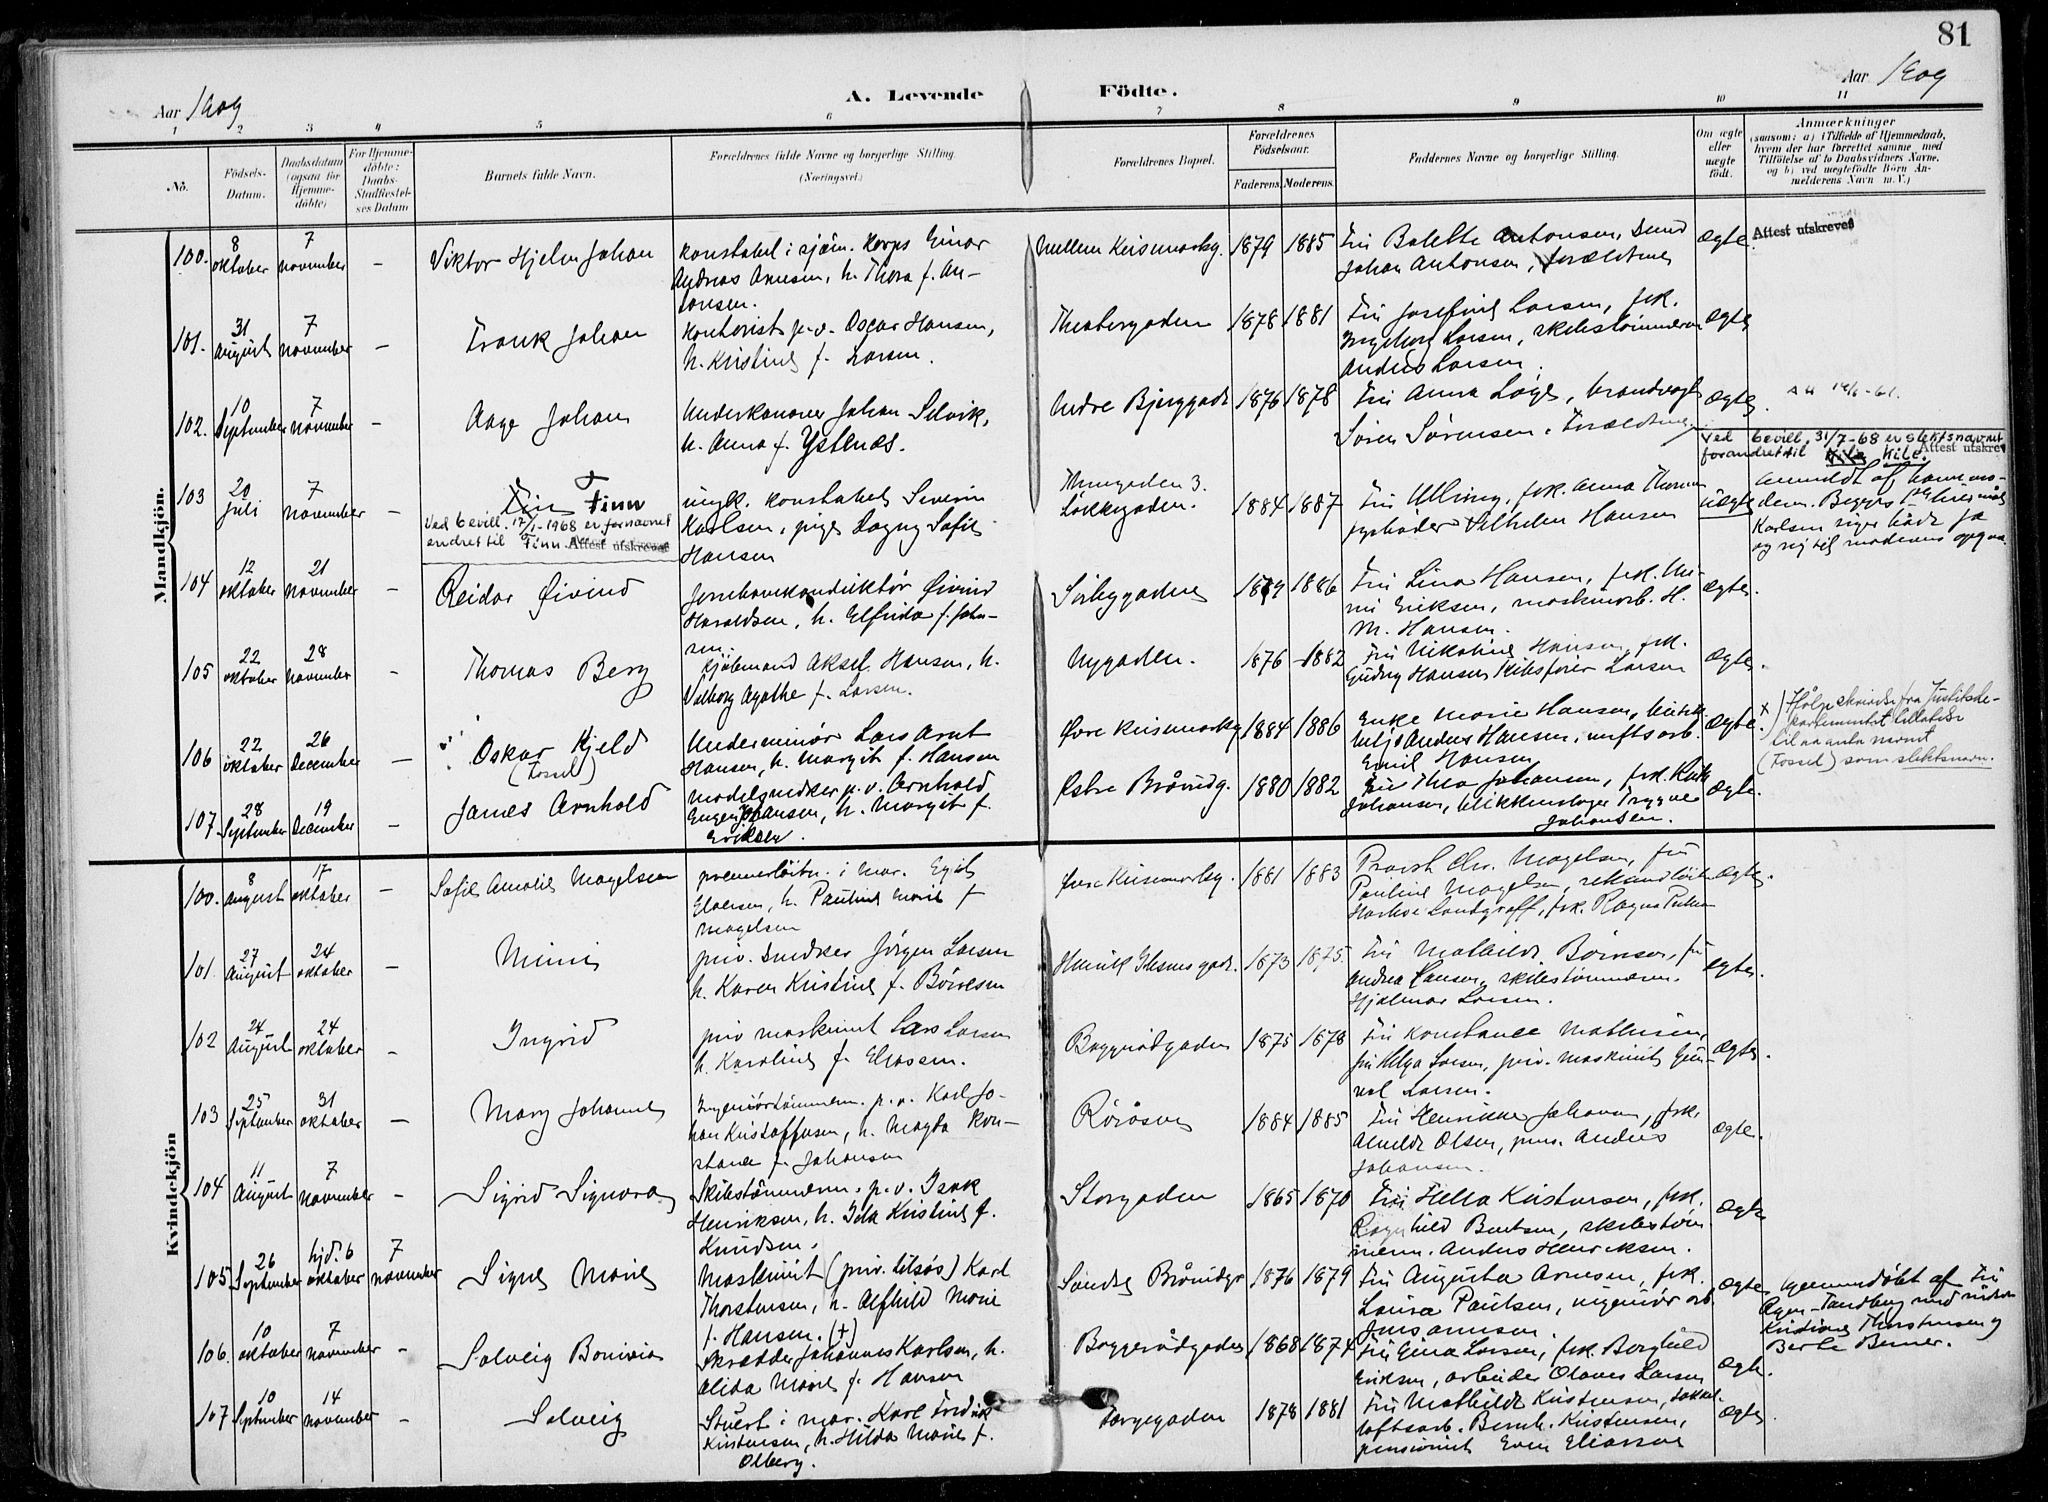 81
Aar 1909
A. Levende Födte.
Aar 1909
1 2 3 4 5 6 7 8 9 10 11
No.
Födsels-Datum.
Daabsdatum (ogsaa for Hjemme-döbte)
For Hjemme-döbte: Daabs-Stadfæstel-ses Datum
Barnets fulde Navn.
Forældrenes fulde Navne og borgerlige Stilling. (Næringsvei.)
Forældrenes Bopæl.
Forældrenes Födselsaar.
Faderens. Moderens.
Faddernes Navne og borgerlige Stilling.
Om ægte eller uægte födt.
Anmærkninger
(saasom: a) i Tilfælde af Hjemmedaab, hvem der har forrettet samme, med Tilföielse af to Daabsvidners Navne, og b) ved uægtefödte Börn An-melderens Navn m. V.)
Mandkjön.
100. 8 oktober 7 november – Viktor Hjelm Johan
konstabel i sjöm. Korps Einar
Andreas Arnesen, h. Thora f. An-
tonsen.
Mellem Keisemarkg. 1879 1885
Fru Bolette Antonsen, Svend
Johan Antonsen, Forældrene
Ægte. Attest utskrevet
101. 31 august 7 november – Frank Johan
Kontorist p.v. Oscar Hansen,
h. Kristine f. Larsen.
Theatergaden 1878 1881
Fru Josefine Larsen, frk.
Ingeborg Larsen, skibstömmerm.
Anders Larsen.
Ægte
102. 10 September 7 november – Aage Johan
Underkanoner Johan Selvik,
h. Anna f. Ystenæs.
Nedre Bjerggade 1876 1878
Fru Anna Löge, brandvagt
Sören Sörensen. Forældrene
Ægte.
Ved bevill. 31/7-68 er slektsnavnet
forandret til Kile. Attest utskrevet
103 20 Juli 7 november – Finn
Ved bevill. 17/1-1968 er fornavnet
endret til Finn. Attest utskrevet
ungk. konstabel Severin
Karlsen, pige Dagny Sofie
Hansen
Thuegaden 3.
Lökkegaden. 1884 1887
Fru Ulling, frk. Anna Thorsen
fyrböder Vilhelm Hansen
uægte
anmeldt af barnemo-
deren.
Karlsen siger både ja
og nej til moderens opgave.
104 12 oktober 21 november – Reidar Öivind
Jernbanekonduktör Öivind
Haraldsen, h. Elfrida f. John-
sen.
Sibygaden 1886
Fru Lina Hansen, frk. Mi-
mi Eriksen, maskinarb. H.
M. Hansen.
Ægte.
105 22 oktober 28 november – Thomas Berg
Kjöbmand Aksel Hansen, h.
Valborg Agathe f. Larsen.
Nygaden. 1876 1882
Fru Nikoline Hansen, frk.
Gudny Hansen, skibsförer Larsen
Ægte.
106 22 oktober 26 December – Oskar Kjeld
(Fossel)
Underminör Lars Arnt
Hansen, h. Margit f. Hansen
Övre Keisemarkg 1884 1886
Enke Marie Hansen,
Anders Hansen,
Emil Hansen
Ægte.
x) Ifölge skrivelse fra Justitsde-
partementet tillatelse
til aa anta navnet
(Fossel) som slektsnavn.
107 28 September 19 December – James Arnhold
Modelsnedker p.v. Arnhold
Eugen Johansen, h. Margit f.
Eriksen.
Östre Bråundg. 1880 1882
Fru Thea Johansen, frk. Ruth
Johansen, blikkenslager Trygve
Johansen.
Ægte.
Kvindekjön
100. 8 august 17 oktober – Sofie Amalie Magelsen
premierlöitn. i mar. Egil
h. Pauline Marie f
Magelsen
Övre Keisemarkg. 1881 1883
Provst Chr. Magelsen, fru
Pauline Magelsen, sekondlöitn.
Landgraff, frk. Ragna
Ægte.
101. 27 August 24 oktober – Mimi
priv. Snedker Jörgen Larsen
h. Karen Kristine f. Börresen
Henrik Ibsens gade. 1873 1875.
Fru Mathilde Börresen, fru
Andrea Larsen, skibstömmerm.
Hjalmar Larsen.
ægte.
102 24 August 24 oktober – Ingrid
priv maskinist Lars Larsen
h. Karoline f. Eliassen.
Baggerödgaden 1875 1878
Fru Konstance Mathisen,
fru Helga Larsen, priv. maskinist Gun-
val Larsen.
Ægte.
103 25 September 31 oktober – Mary Johanne
Ingeniörtömmerm. p.v. Karl Jo-
han Kristoffersen, h. Magda Kon-
stance f. Johansen
Rörosen 1884 1885
Fru Henrikke Johansen, frk.
Almilde Olsen, pens. Anders
Johansen.
Ægte.
104 11 August 7 november – Sigrid Signora
Skibstömmerm. p.v. Isak
Henriksen, h. Ida Kristine f.
Knudsen.
Storgaden 1865 1870
Fru Hella Kristensen, frk.
Ragnhild Bentsen, skibstöm-
merm. Anders Henriksen.
Ægte
105 26 September hjd. 6 oktober 7 november Signe Marie
Maskinist (priv. tilsös) Karl
Thorstensen, h. Alfhild Marie
f. Hansen. (+)
Söndre Bråundgt 1876 1879
Fru Augusta Arnesen, frk.
Laura Paulsen, ingeniör arb.
Ægte
hjemmedöbt af Fru
Agnes Tandberg med vidner
Kristiane Thorstensen og
Berte Berner.
106. 10 oktober 7 november – Solveig Bonivia
Skrædder Johannes Karlsen, h.
Alida Marie f. Hansen
Baggerödgaden 1868 1874
Fru Gina Larsen, frk. Borghild
Eriksen, arbeider Olaves Larsen
Ægte.
107 10 September 14 november – Solveig
Stuert i mar. Karl Fredrik
Kristensen, h. Hilda Marie f.
Olberg.
Torvegaden 1878 1881
Fru Mathilde Kristensen,
loftsarb. Bernh. Kristensen,
pensionist Even Eliassen
Ægte.